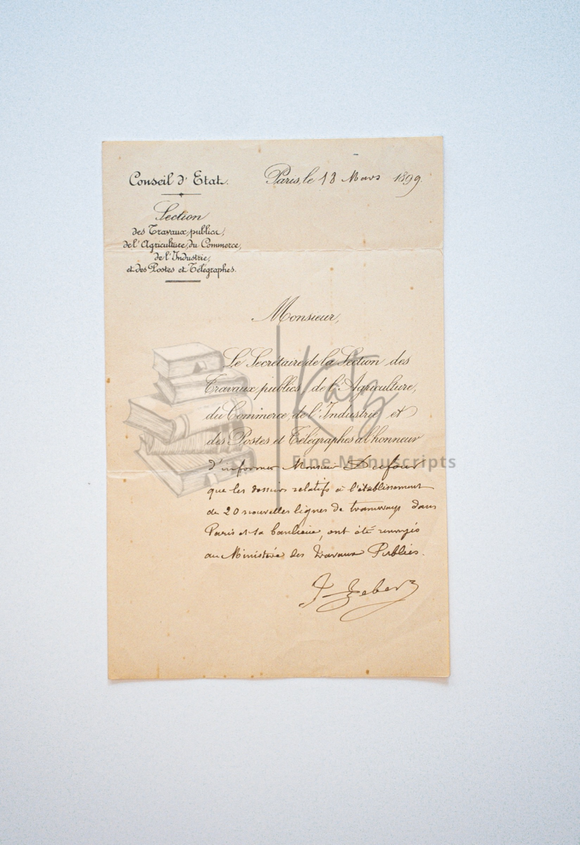 Conseil d'Etat.
Paris, le 13 Mars 1899.
Section
des Travaux publics,
de l'Agriculture, du Commerce,
de l'Industrie,
et des Postes et Télégraphes.
Monsieur,
Le Secrétaire de la Section des
Travaux publics, de l'Agriculture,
du Commerce, de l'Industrie, et
des Postes et Télégraphes a l'honneur
d'informer Monsieur
que les dossiers relatifs à l'établissement
de 20 nouvelles lignes de tramways dans
Paris et sa banlieue, ont été renvoyés
au Ministère des Travaux Publics.
Katz
Fine Manuscripts